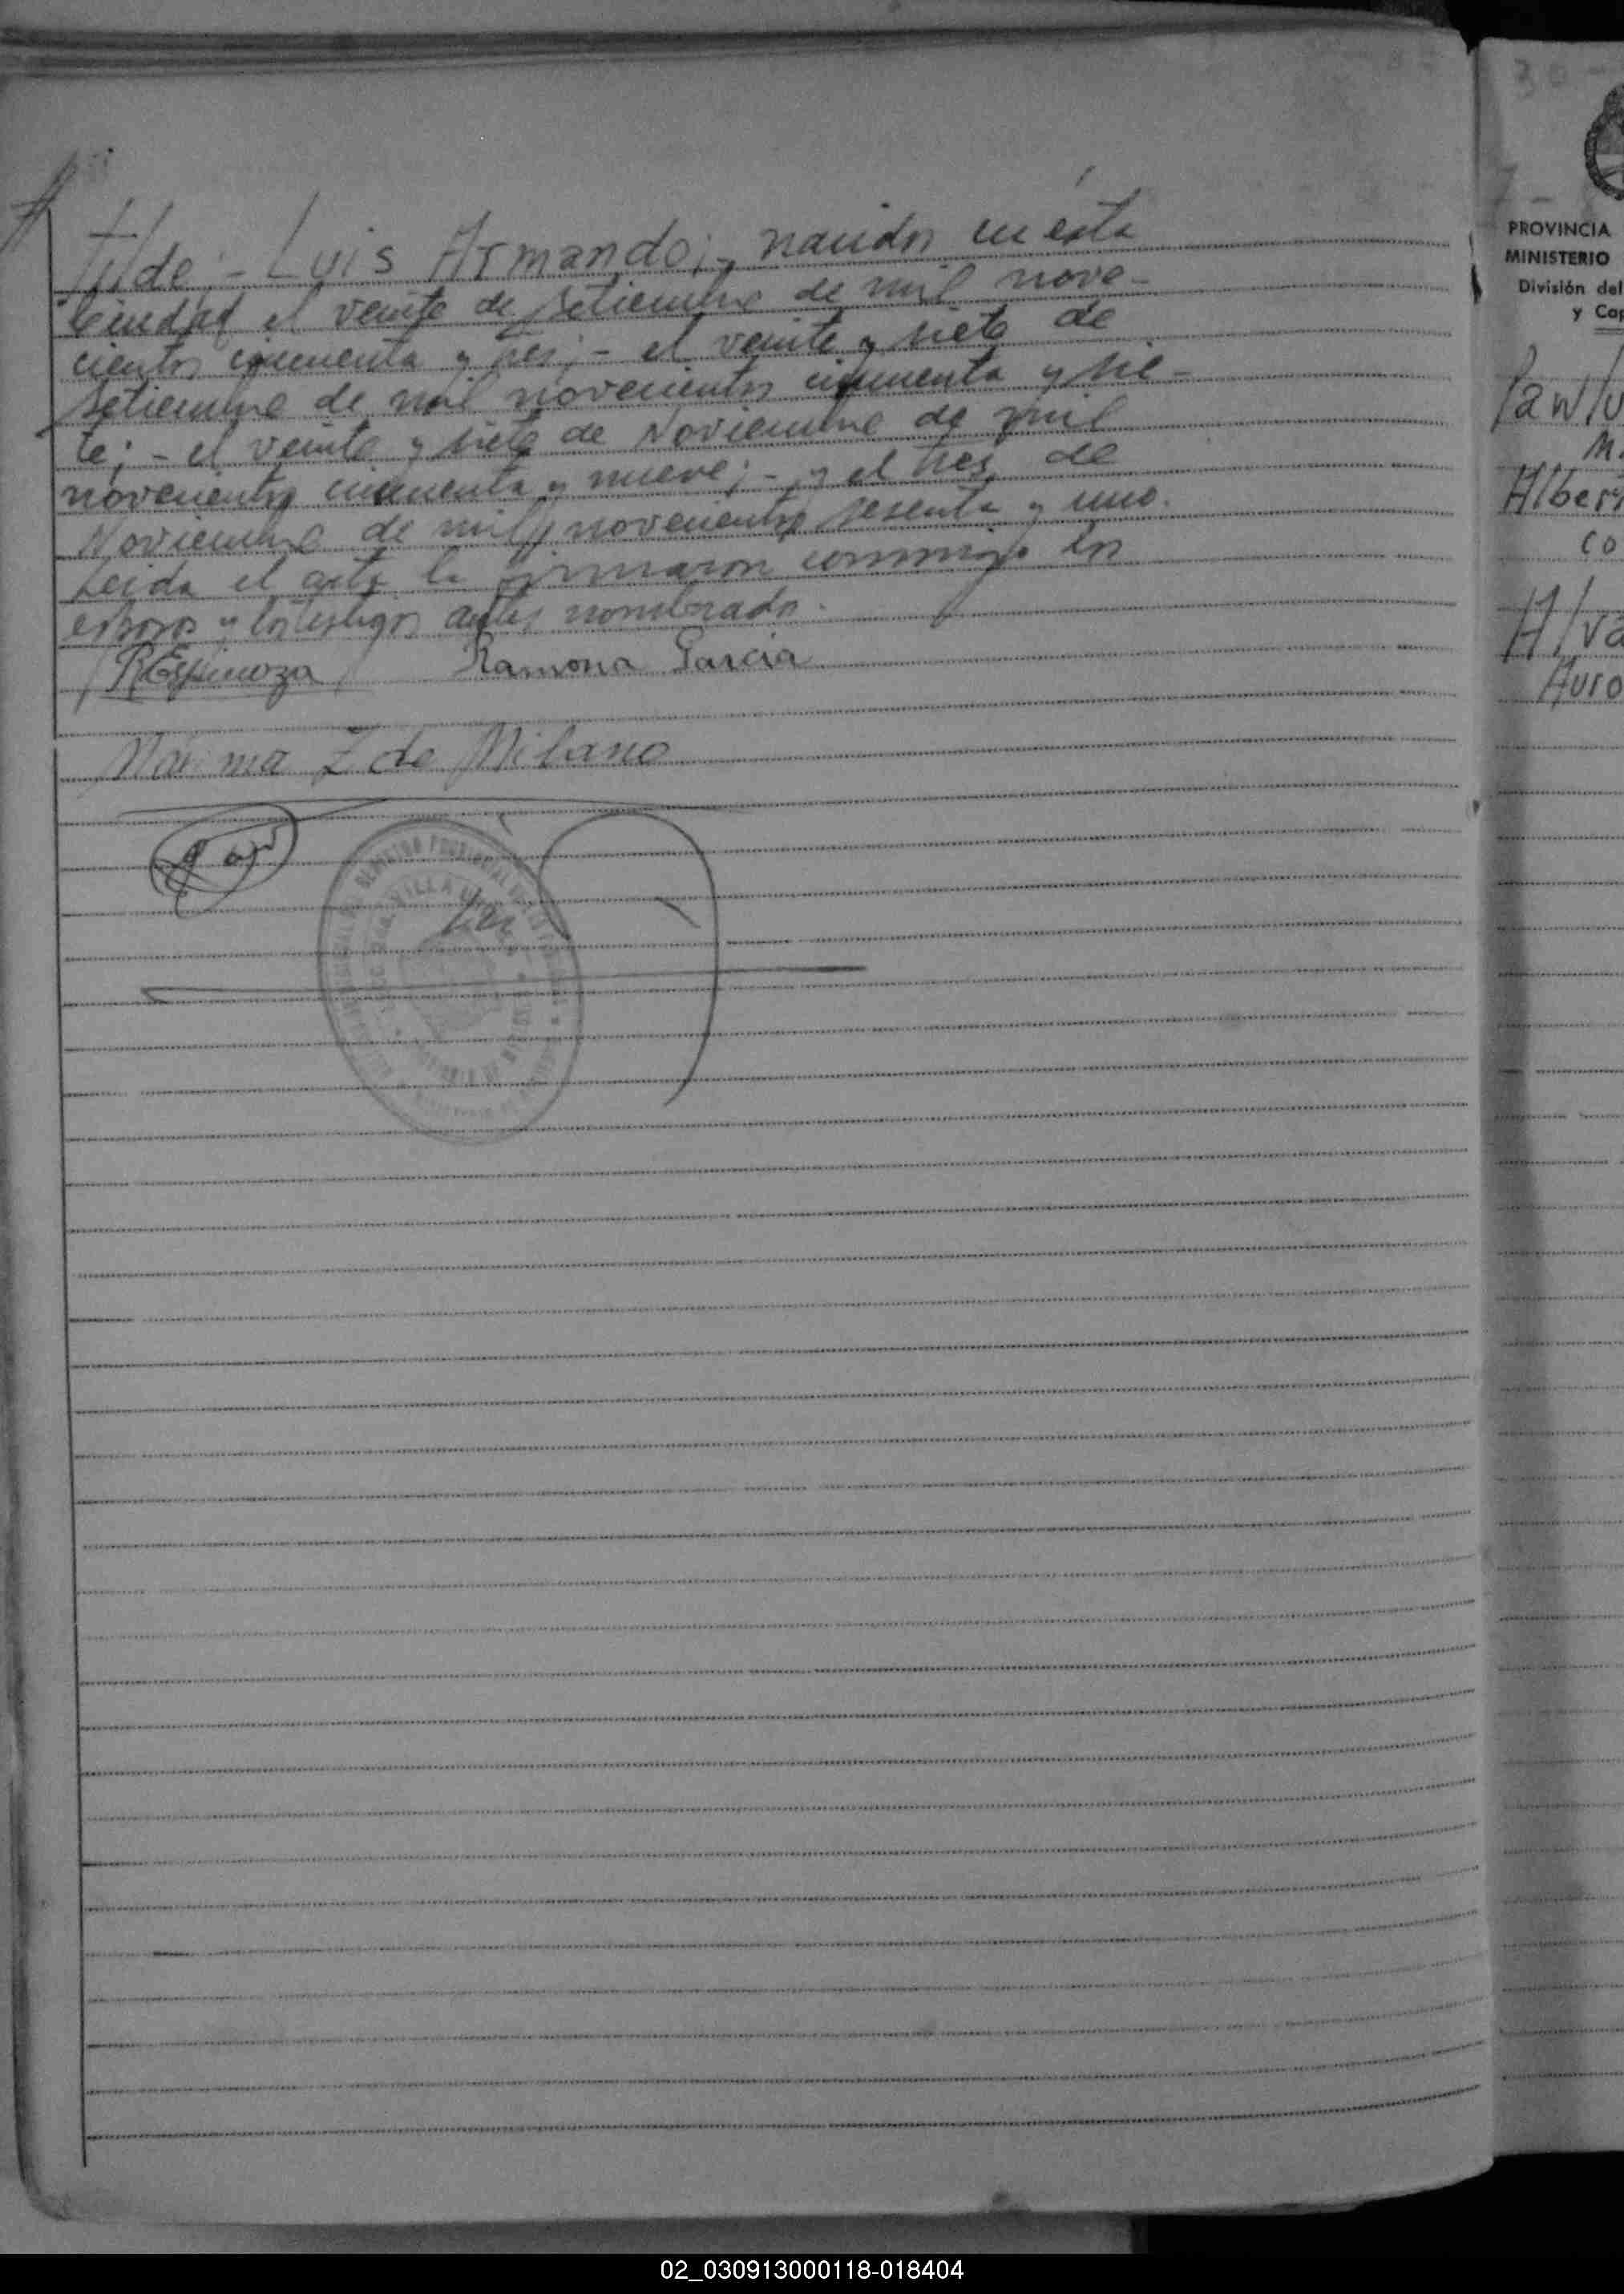 Luis Armando; - nacidos en ésta
Ciudad el veinte de Setiembre de mil nove-
cientos cincuenta y tres; - el veinte y siete de
Setiembre de mil novecientos cincuenta y sie-
te; - el veinte y siete de Noviembre de mil
novecientos cincuenta y nueve; - y el tres de
Noviembre de mil novecientos sesenta y uno.
Leida el acta la firmaron conmigo los
esposos y los testigos antes nombrados.
REspinoza Ramona Garcia
Z de Milano
VILLA
PROVINCIA
MINISTERIO
División del
y Cap
Albert
Co
Alva
Auro
02_030913000118-018404